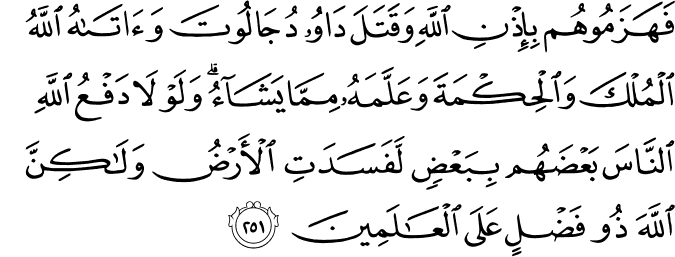 فَهَزَمُوهُم بِإِذْنِ ٱللَّهِ وَقَتَلَ دَاوُۥدُ جَالُوتَ وَءَاتَىٰهُ ٱللَّهُ
ٱلْمُلْكَ وَٱلْحِكْمَةَ وَعَلَّمَهُۥ مِمَّا يَشَآءُ ۗ وَلَوْلَا دَفْعُ ٱللَّهِ
ٱلنَّاسَ بَعْضَهُم بِبَعْضٍ لَّفَسَدَتِ ٱلْأَرْضُ وَلَـٰكِنَّ
ٱللَّهَ ذُو فَضْلٍ عَلَى ٱلْعَـٰلَمِينَ ٢٥١